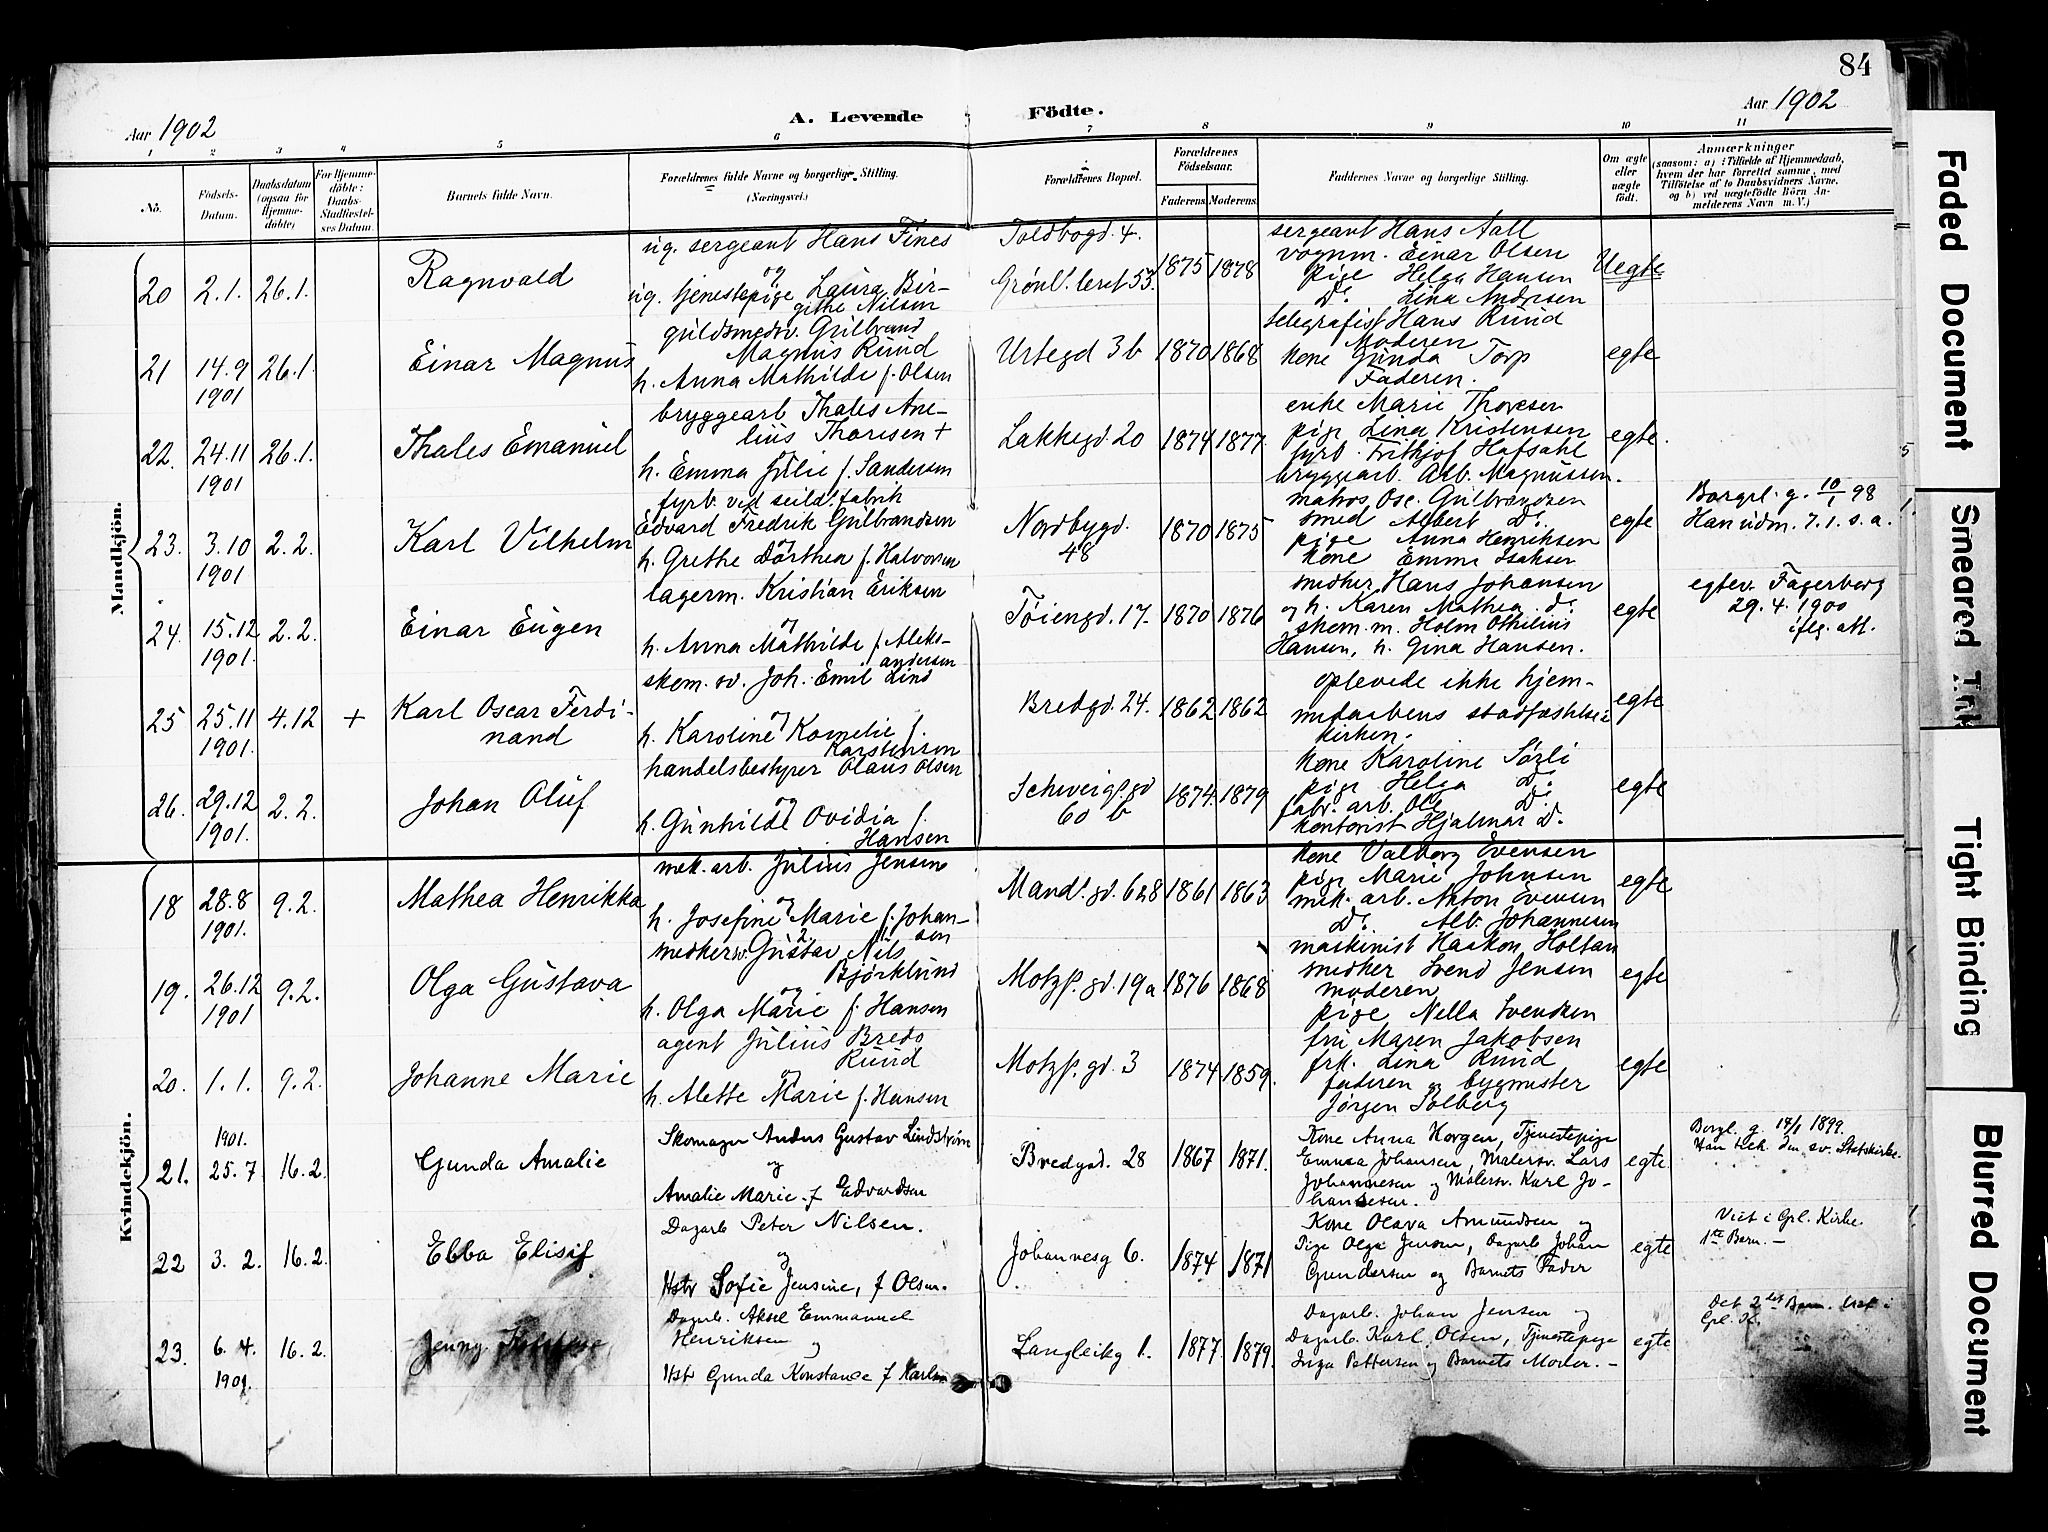 84
Aar 1902
A. Levende Födte.
Aar 1902
1 2 3 4 5 6 7 8 9 10 11
No.
Födsels-Datum.
Daabsdatum (ogsaa for Hjemme-døbte)
For Hjemme-døbte: Daabs-Stadfæstel-ses Datum.
Barnets fulde Navn.
Forældrenes fulde Navne og borgerlige Stilling.
(Næringsvei.)
Forældrenes Bopæl.
Forældrenes Födselsaar.
Faderens. Moderens.
Faddernes Navne og borgerlige Stilling.
Om ægte eller uægte født.
Anmærkninger
(saasom: a) i Tilfælde af Hjemmedaab, hvem der har forrettet samme, med Tilføielse af to Daabsvidners Navne, og b) ved uægtefødte Börn An-melderens Navn m. V.)
Mandkjön.
20 2.1. 26.1. Ragnvald
ug. sergeant Hans Fines
og
ug. tjenestepige Laura Bir-
githe Nilsen
Toldbogd. 4.
Grønl. leret 53.
1875 1878
sergeant Hans Aall
vognm. Einar Olsen
pige Helga Hansen
Do. Lina Andresen
Uegte
21 14.9 1901 26.1. Einar Magnus
guldsmedsv. Gulbrand
Magnus Ruud
h. Anna Mathilde f. Olsen
Urtegd 3b
1870 1868
telegrafist Hans Ruud
Moderen
kone Gunda Torp
Faderen.
egte
22. 24.11 1901 26.1. Thales Emanuel
bryggearb Thales Ane-
lius Thoresen +
h. Emma Julie f. Sandersen
Lakkegd. 20
1874 1877.
enke Marie Thoresen
pige Lina Kristensen
fyrb. Frithjof Hafsahl
bryggearb. Alb. Magnussen.
egte.
23. 3.10 1901 2.2. Karl Vilhelm
fyrb. ved seild. fabrik
Edvard Fredrik Gulbrandsen
og
h. Grethe Dorthea f. Halvorsen
Nordbygd. 48
1870 1875
matros Osc. Gulbrandsen
smed Albert Do.
pige Anna Henriksen
kone Emma Isaksen
egte
Borgrl. g. 10/1 98
Han udm. 7.1. s. a.
24. 15.12 1901. 2.2. Einar Eugen
lagerm. Kristian Eriksen
og
h. Anna Mathilde f. Aleks-
andersen
Tøiengd. 17.
1870 1876
snedker Hans Johansen
og h. Karen Mathea do.
skom. m. Holm Othilius
Hansen, h. Gina Hansen.
egte
egtev. Fagerberg
29.4.1900
iflg. att.
25 25.11 1901. 4.12 + Karl Oscar Ferdi-
nand
skom. sv. Joh. Emil Lind
og
h. Karoline Kornelie f.
Karstensen
Bredgd. 24.
1862 1862
oplevede ikke hjem-
medaabens stadfæstelse i
kirken.
egte
26. 29.12 1901. 2.2. Johan Oluf
handelsbestyrer Olaus Olsen
og
h. Gunhilde Ovidia f.
Hansen
Schweigs. gd 60 b
1874. 1879
kone Karoline Sørli
pige Helga Do.
fabr. arb. Ole Do.
kontorist Hjalmar Do.
egte
Kvindekjön.
18 28.8 1901. 9.2. Mathea Henrikka
mek. arb. Julius Jensen
og
h. Josefine Marie f. Johan-
sen
Mandl. gd. 6 &8
1861 1863
kone Valborg Evensen
pige Marie Johnsen
mek. arb. Anton Evensen
Do. Alb. Johannesen
egte
19. 26.12 1901 9.2. Olga Gustava
snedkersv. Gustav Nils
Bjørklund
og
h. Olga Marie f. Hansen
Motzf. gd. 19a
1876 1868
maskinist Haakon Holtan
snedker Svend Jensen
moderen
pige Nella Svendsen
egte
20. 1.1. 9.2. Johanne Marie
agent Julius Bredo
Ruud
og
h. Alette Marie f. Hansen
Motzf. gd. 3
1874 1859.
fru Maren Jakobsen
frk. Lina Ruud
faderen og bygmester
Jørgen Solberg
egte
21. 1901. 25.7 16.2. Gunda Amalie
Skomager Anders Gustav Lindstrøm
og
Amalie Marie f Edvardsen
Bredgad. 28
1867 1871.
Kone Anna Horgen, Tjenestepige
Emma Johansen, Malersv. Lars
Johannesen og Malersv. Karl Jo-
hannesen.
egte.
Borgl. g. 14/1 1899.
Han bek. den sv. Statskirke.
22 3.2. 16.2. Ebba Elisif
Dagarb Peter Nilsen.
og
Hstr Sofie Jensine, f Olsen.
Johannesg 6.
1874 1871
Kone Olava Amundsen og
Pige Olga Jensen, Dagarb Johan
Gundersen og Barnets Fader
egte
Viet i Grl. Kirke.
1ste Barn. —
23. 6.4. 1901. 16.2. Jenny
Dagarb. Aksel Emmanuel
Henriksen og
Hstr Gunda Konstance f Karlsen
Langleikg 1.
1877. 1879.
Dagarb. Johan Jensen og
Dagarb. Karl Olsen, Tjenestepige
Inga Pettersen og Barnets Moder. —
egte
Det 2det Barn. Viet i
Grl. K.
Faded Document
Smeared Ink
Tight Binding
Blurred Document